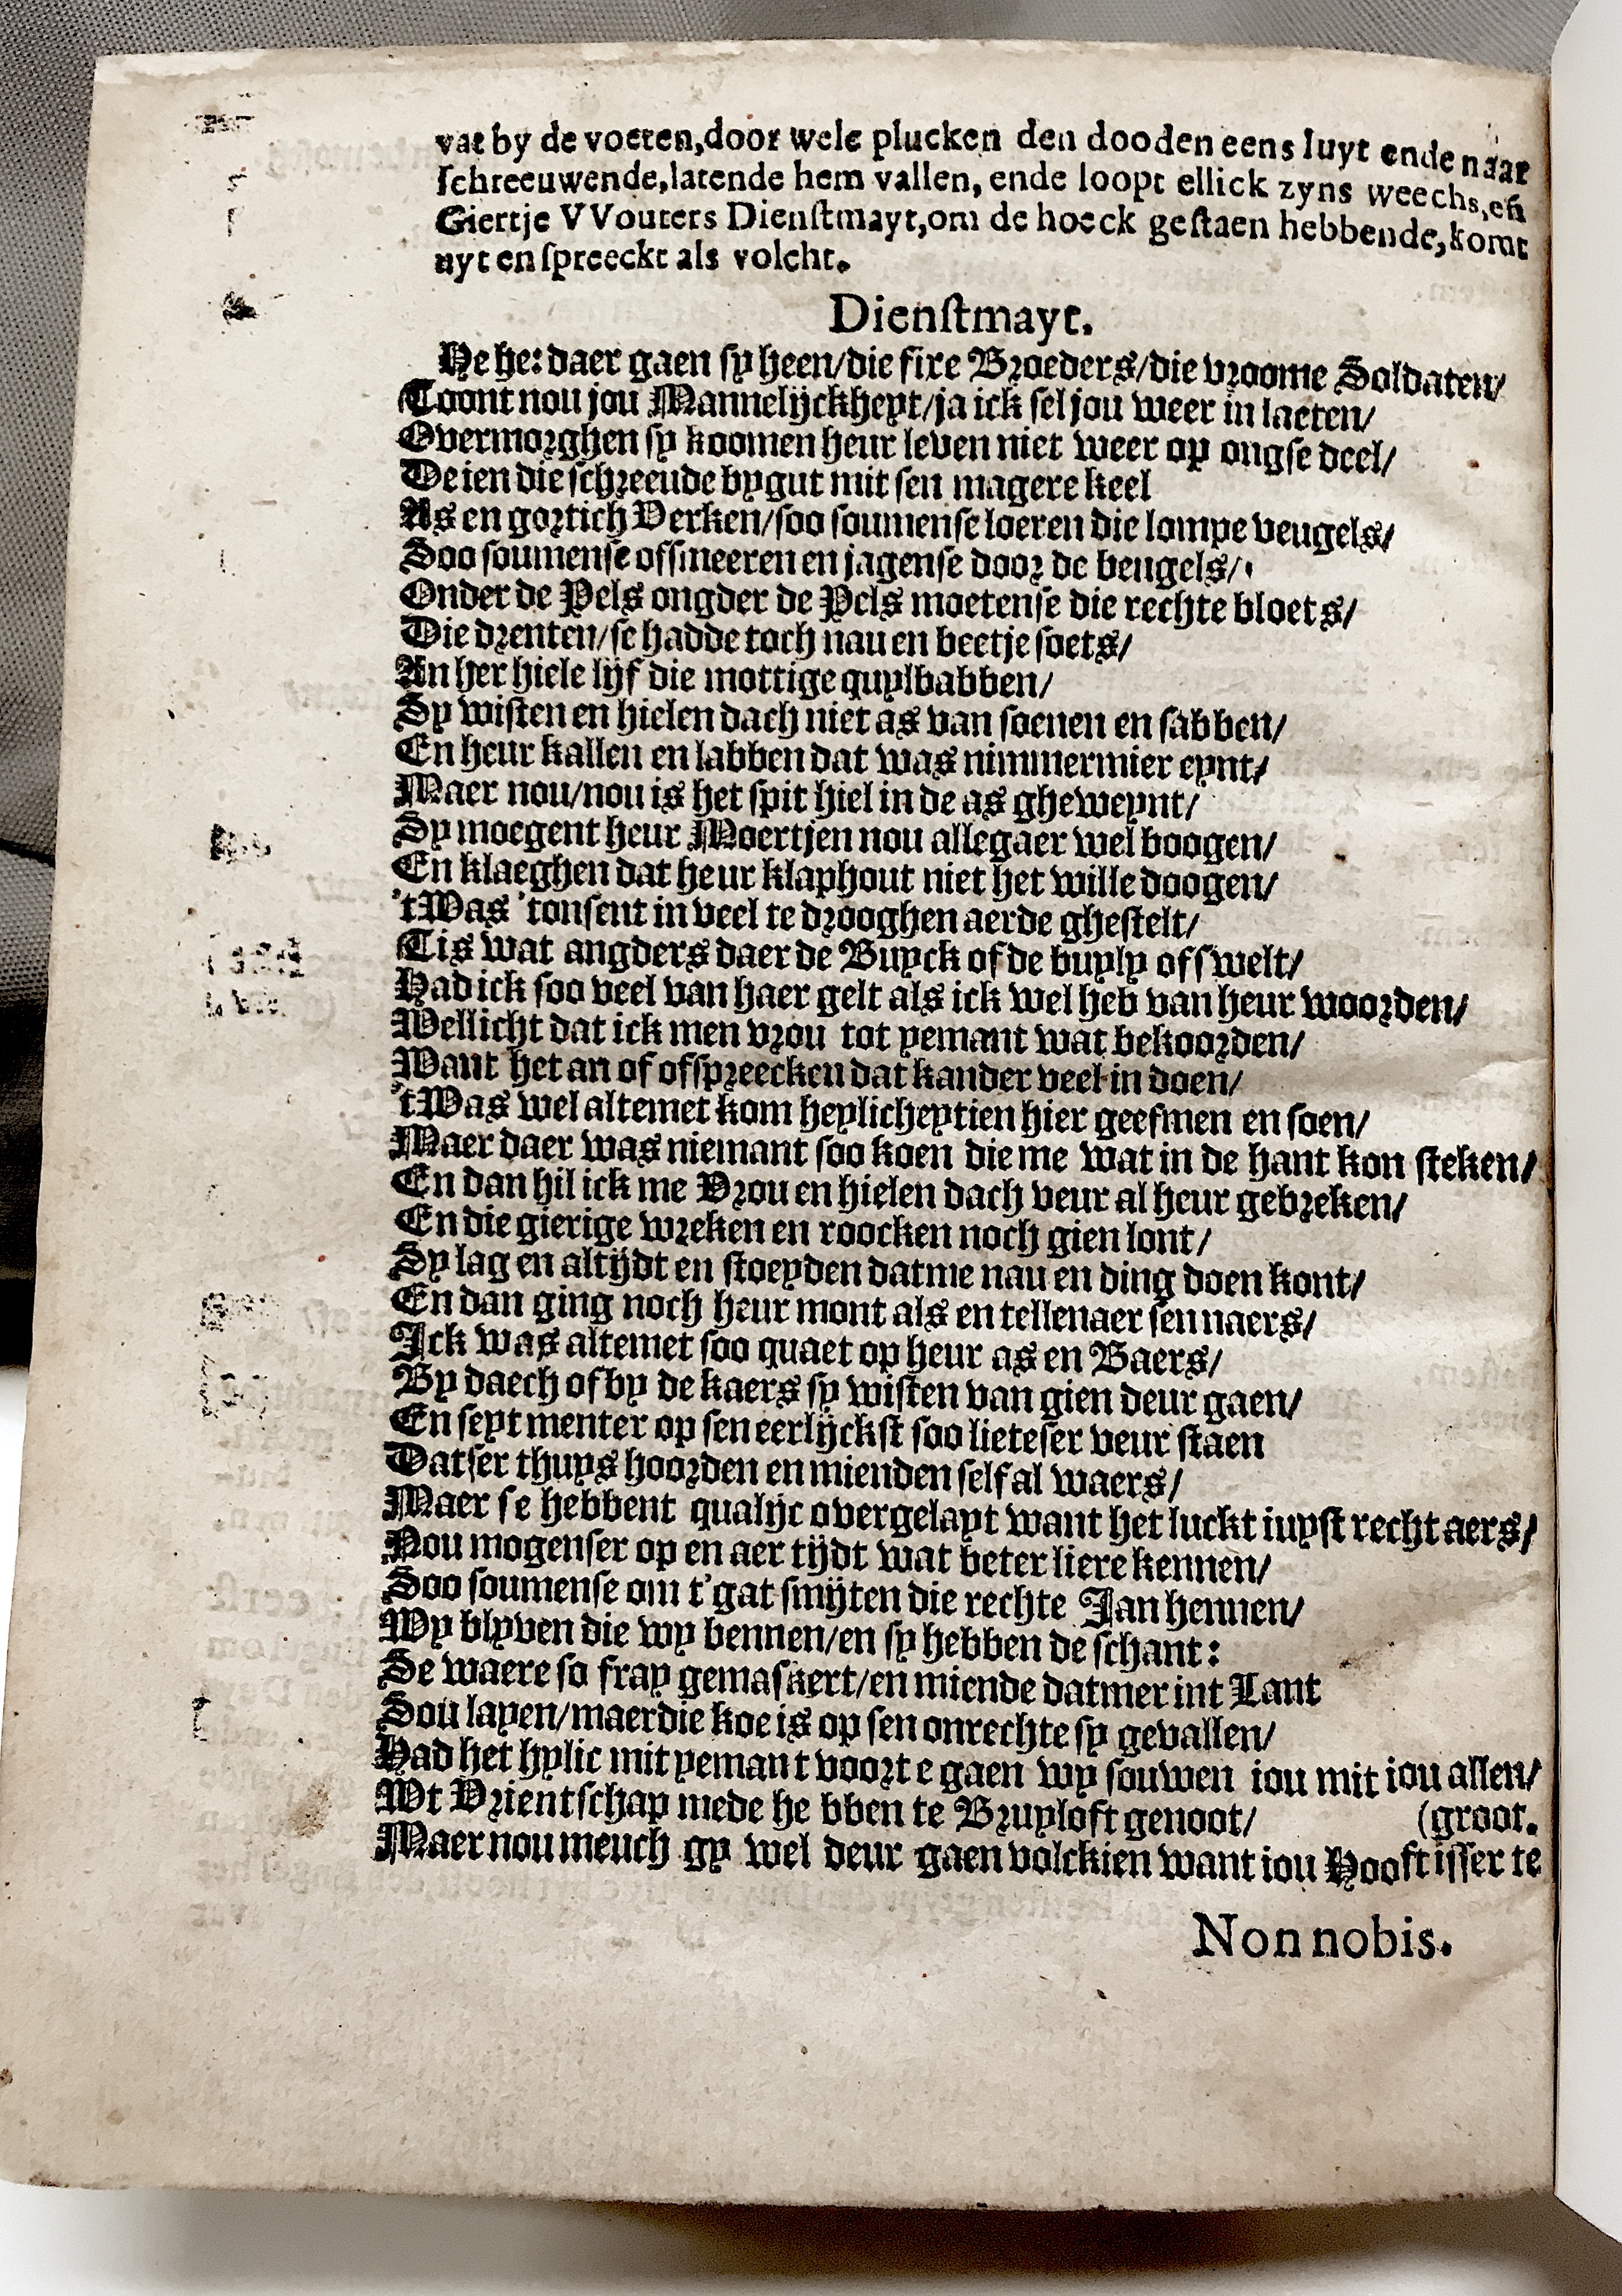 vat by de voeten, door welc plucken den dooden eens luyt ende naar
schreeuwende, latende hem vallen, ende loopt ellick zyns weechs, eñ
Giertje VVouters Dienstmayt, om de hoeck gestaen hebbende, komt
uyt en spreeckt als volcht.
Dienstmayt.
He he: daer gaen sy heen/die fixe Broeders/die vroome Soldaten/
Toont nou jou Mannelijckheyt/ja ick sel jou weer in laeten/
Overmorghen sy koomen heur leven niet weer op ongse deel/
De ien die schreeude bygut mit sen magere keel
As en gortich Verken/soo soumense loeren die lompe veugels/
Soo soumense ofsmeeren en jagense door de beugels/
Onder de Pels ongder de Pels moetense die rechte bloets/
Die drenten/se hadde toch nau en beetje soets/
An her hiele lijf die mottige quylbabben/
Sy wisten en hielen dach niet as van soenen en sabben/
En heur kallen en labben dat was nimmermier eynt/
Maer nou/nou is het spit hiel in de as gheweynt/
Sy moegent heur Moertjen nou allegaer wel boogen/
En klaeghen dat heur klaphout niet het wille doogen/
'tWas 'tonsent in veel te drooghen aerde ghestelt/
Tis wat angders daer de Buyck of de buyly ofswelt/
Had ick soo veel van haer gelt als ick wel heb van heur woorden/
Wellicht dat ick men vrou tot yemant wat bekoorden/
Want het an of ofspreecken dat kander veel in doen/
'tWas wel altemet kom heylicheytien hier geefmen en soen/
Maer daer was niemant soo koen die me wat in de hant kon steken/
En dan hil ick me Vrou en hielen dach veur al heur gebreken/
En die gierige wreken en roocken noch gien lont/
Sy lag en altijdt en stoeyden datme nau en ding doen kont/
En dan ging noch heur mont als en tellenaer sen naers/
Ick was altemet soo quaet op heur as en Baers/
By daech of by de kaers sy wisten van gien deur gaen/
En seyt menter op sen eerlijckst soo lieteser veur staen
Datser thuys hoorden en mienden self al waers/
Maer se hebbent qualijc overgelayt want het luckt iuyst recht aers/
Nou mogenser op en aer tijdt wat beter liere kennen/
Soo soumense om t'gat smijten die rechte Jan hennen/
Wy blyven die wy bennen/en sy hebben de schant:
Se waere so fray gemaskert/en miende datmer int Lant
Sou layen/maer die koe is op sen onrechte sy gevallen/
Had het hylic mit yemant voort e gaen wy souwen iou mit iou allen/
Wt Vrientschap mede he bben te Bruyloft genoot/ (groot.
Maer nou meuch gy wel deur gaen volckien want iou Hooft isser te
Non nobis.